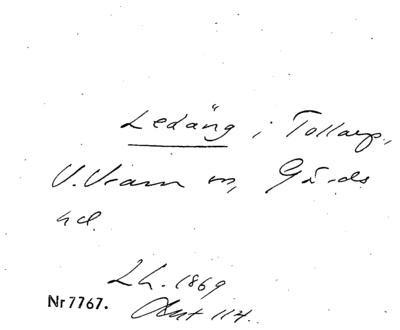 Ledäng i Tollarp,
V. Vram sn, Gärds
hd.
LH. 1869
Nr 7767. Akt 114.